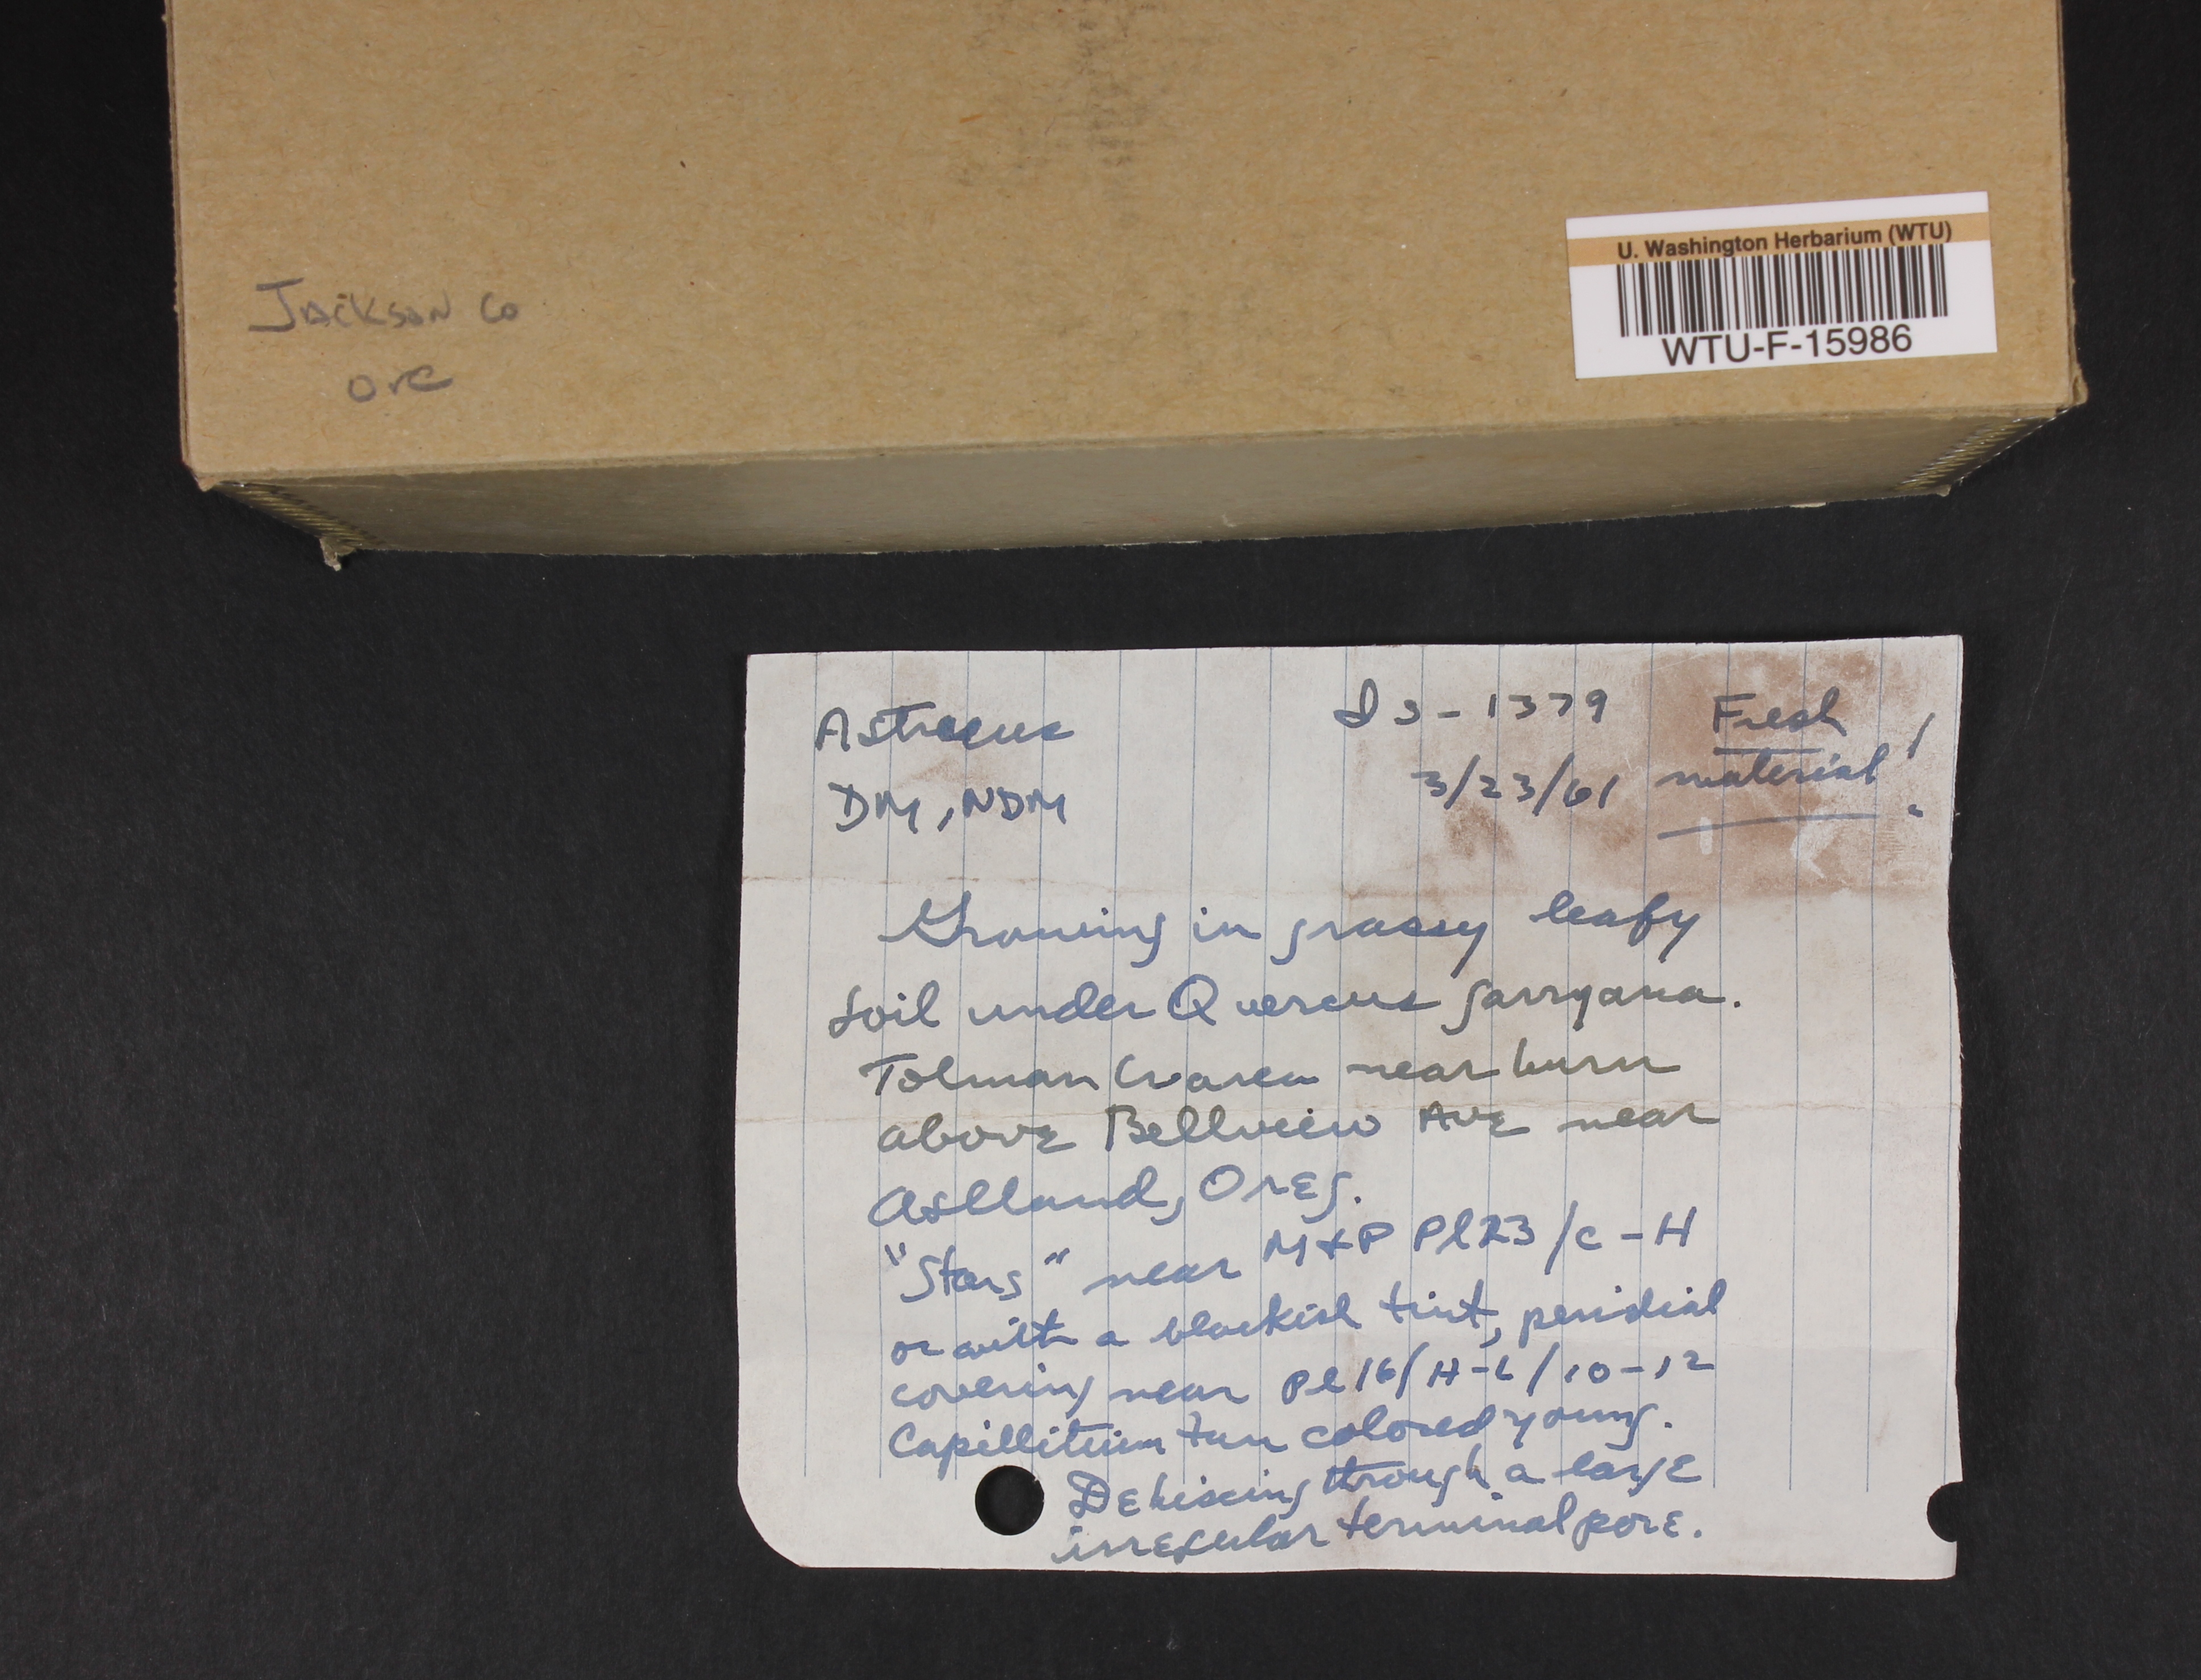 Jackson Co
Ore
U. Washington Herbarium (WTU)
WTU-F-15986
Astraeus
DS-1379
Fresh
DM, NDM
3/23/61
material!
Growing in grassy leafy
soil under Quercus garryana.
Tolman Cr area near burn
above Bellview Ave near
Ashland, Oreg.
"Stars" near M+P Pl 23/C-H
or with a blackish tint, peridial
covering near Pl 16/H-L/10-12
Capillitium tan colored young.
Dehiscing through a large
irregular terminal pore.